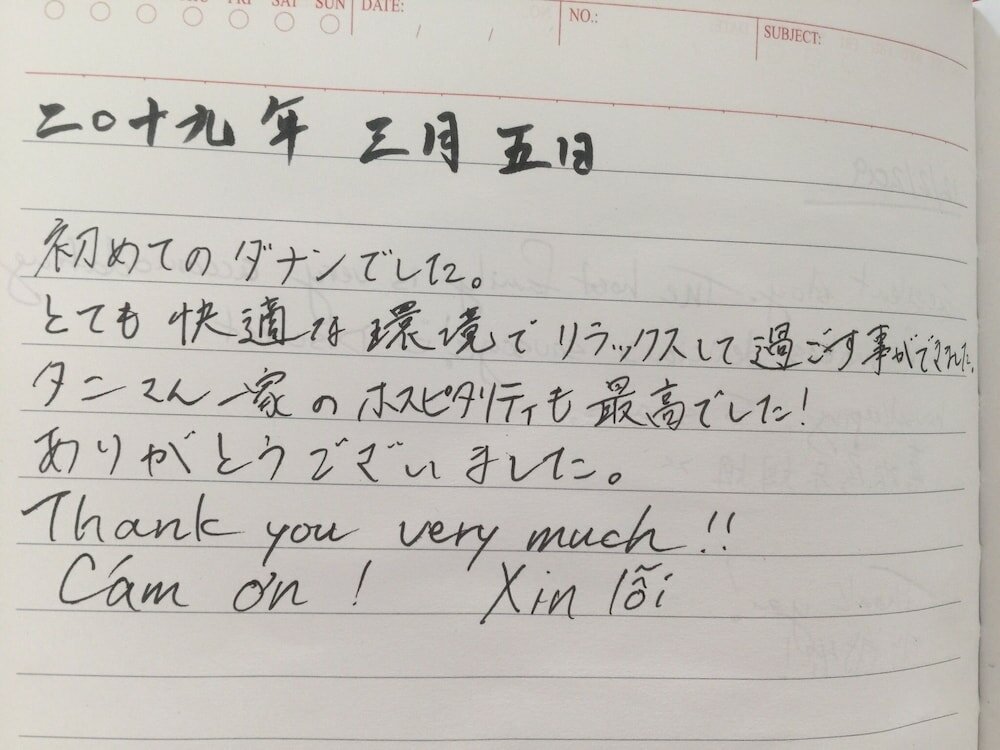 THU FRI SAT SUN DATE: / / NO.: SUBJECT:
二〇十九年 三月 五日
初めてのダナンでした。
とても快適な環境でリラックスして過ごす事ができました。
タンさん一家のホスピタリティも最高でした!
ありがとうございました。
Thank you very much!!
Cám ơn! Xin lỗi